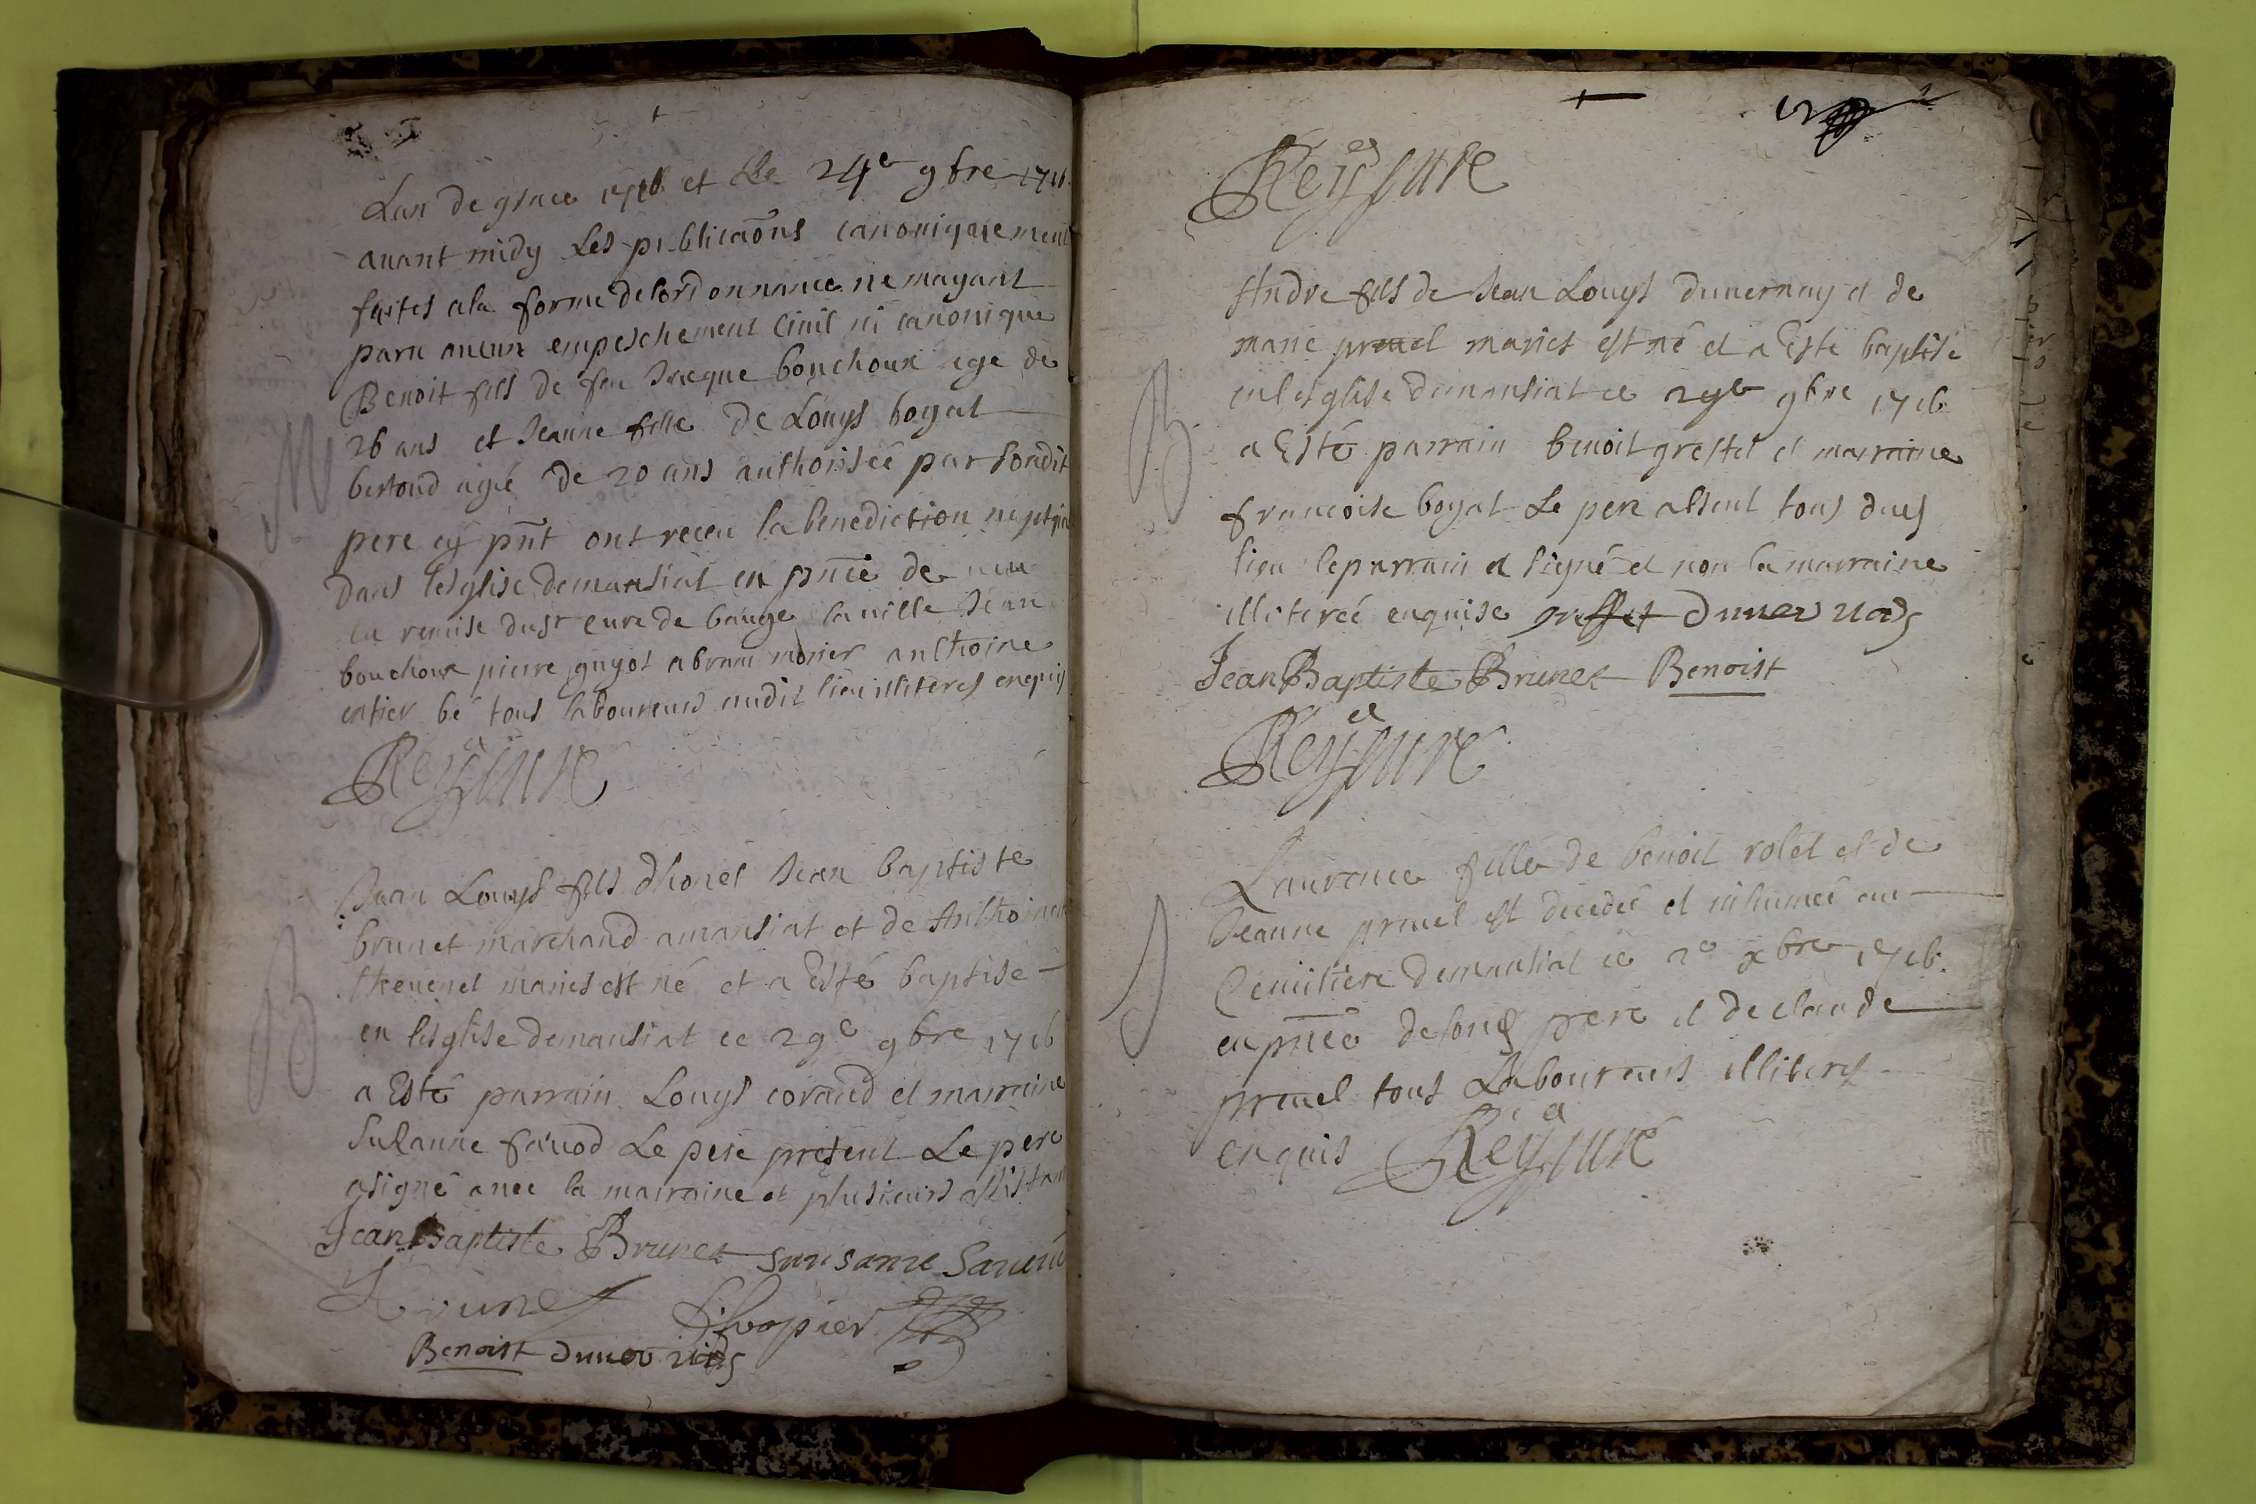 Lan de grace 1716 et le 24e 9bre 1716
avant midy Les publicaõns canoniquement
faites ala forme delordonnance nemayant
paru aucun empeschement Civil ni canonique
Benoit fils de feu Jacque bouchoux age de
M
26 ans et Jeanne fille De Louys boyat
bertoud agée De 20 ans authorisée par sondit
pere cy pnt ont receu la benediction nuptia
Dans lesglise demansiat en pnce de
la remise du sr cure de bauge la ville Jean
bouchoux pierre guyot abram morier anthoine
entier be tous laboureurs audit lieu illiteres enquis
Rey cure
Jean Louys fils dhonet Jean baptiste
brunet marchand amansiat et de Anthoine
B
thevenet maries est né et a Esté baptise
en lesglise demansiat ce 29e 9bre 1716
a Esté parrain Louys corand et marraine
Suzanne favod Le pere present Le pere
asigné avec la marraine et plusieurs assistan
Jean Baptiste Brunet Sunsanne
Benoist duvernads
Rey cure
Andre fils de Jean Louys duvernay et de
marie pruel maries est né et a Esté baptisé
B
enlesglise demansiat ce 29e 9bre 1716
a Esté parrain benoit greffet et marraine
francoise boyat Le pere absent tous dud
lieu leparrain a signé et non la marraine
illiterée enquise greffet duvernads
Jean Baptiste Brunet Benoist
Rey cure
Laurence fille de benoit rolet et de
Jeanne pruel est decedée et inhumée au
Cemitiere demansiat ce 2e xbre 1716
en pnce deson d pere et de claude
pruel tous Laboureurs illiteres
enquis Rey cure